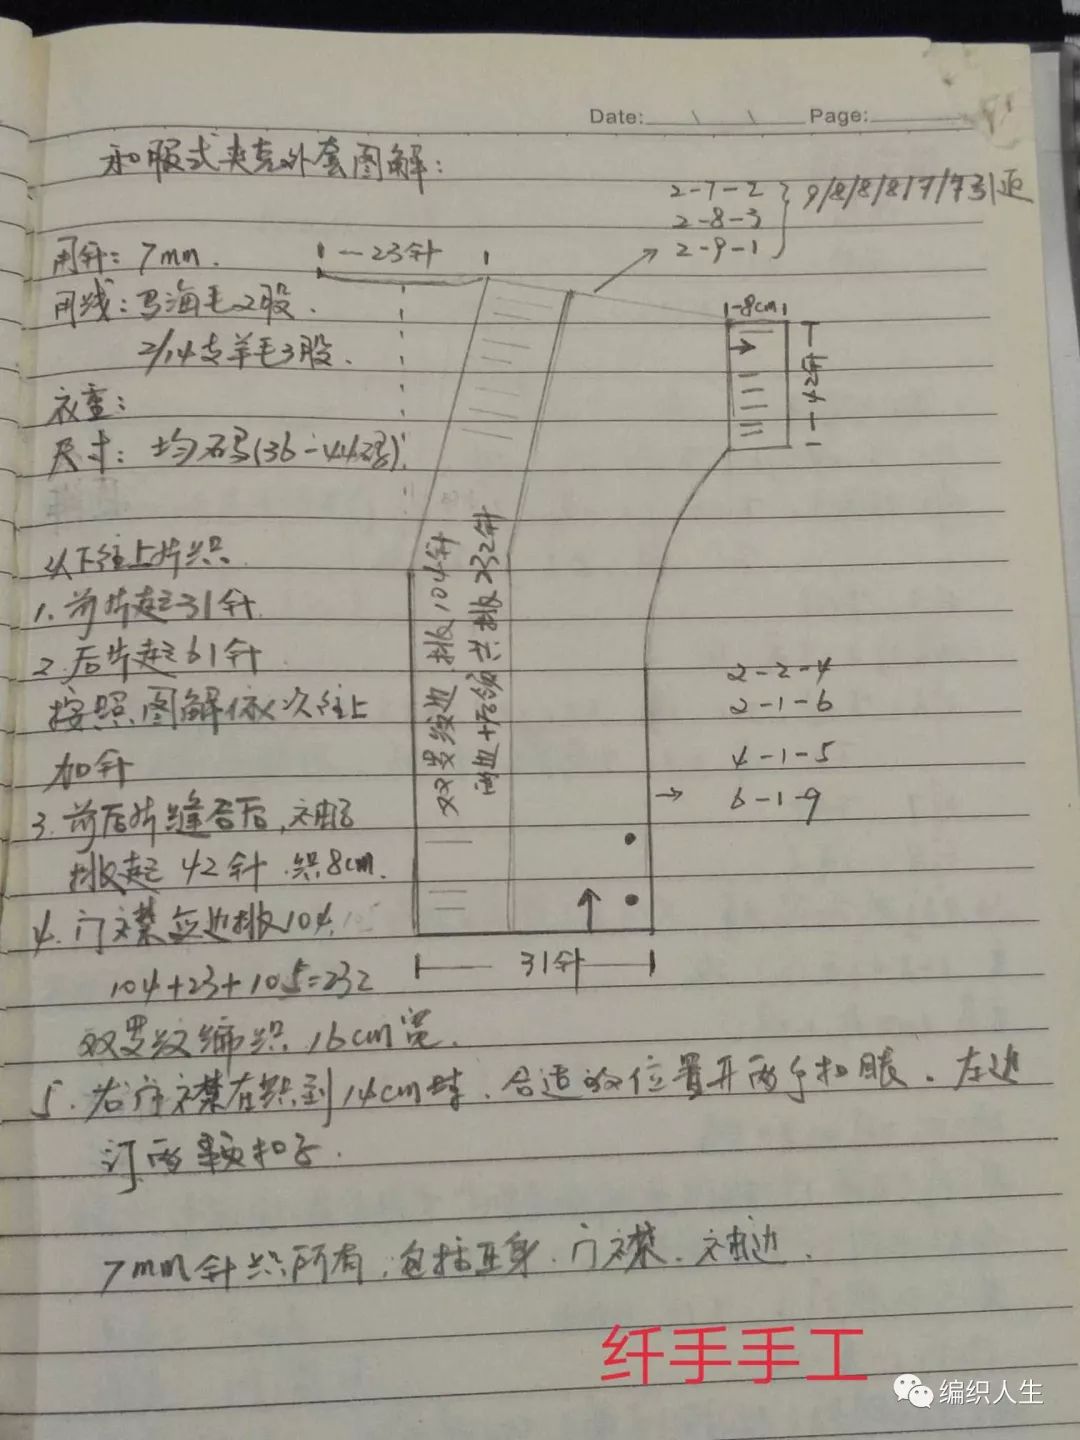 Date: \ \ Page:
和服式夹克外套图解:
2-7-2
2-8-3
2-9-1
9/8/8/8/7/7引返
用针: 7mm.
1--23针 1
用线: 马海毛2股.
2/14支羊毛3股.
1-8cm1
42针
衣重:
尺寸: 均码(36-44码)
以下往上片织
1. 前片起31针
2. 后片起61针
按照图解依次往上
加针
3. 前后片缝合后,袖子
挑起42针.织8cm.
4. 门襟直边挑104,
104+23+105=232
双罗纹编织 16cm宽.
双罗纹边 挑104针
两边+后领共挑232针
2-2-4
2-1-6
4-1-5
6-1-9
31针
5. 右门襟在织到14cm时.合适的位置开两个扣眼.左边
订两颗扣子.
7mm针织所有,包括正身.门襟.袖边.
纤手手工
编织人生